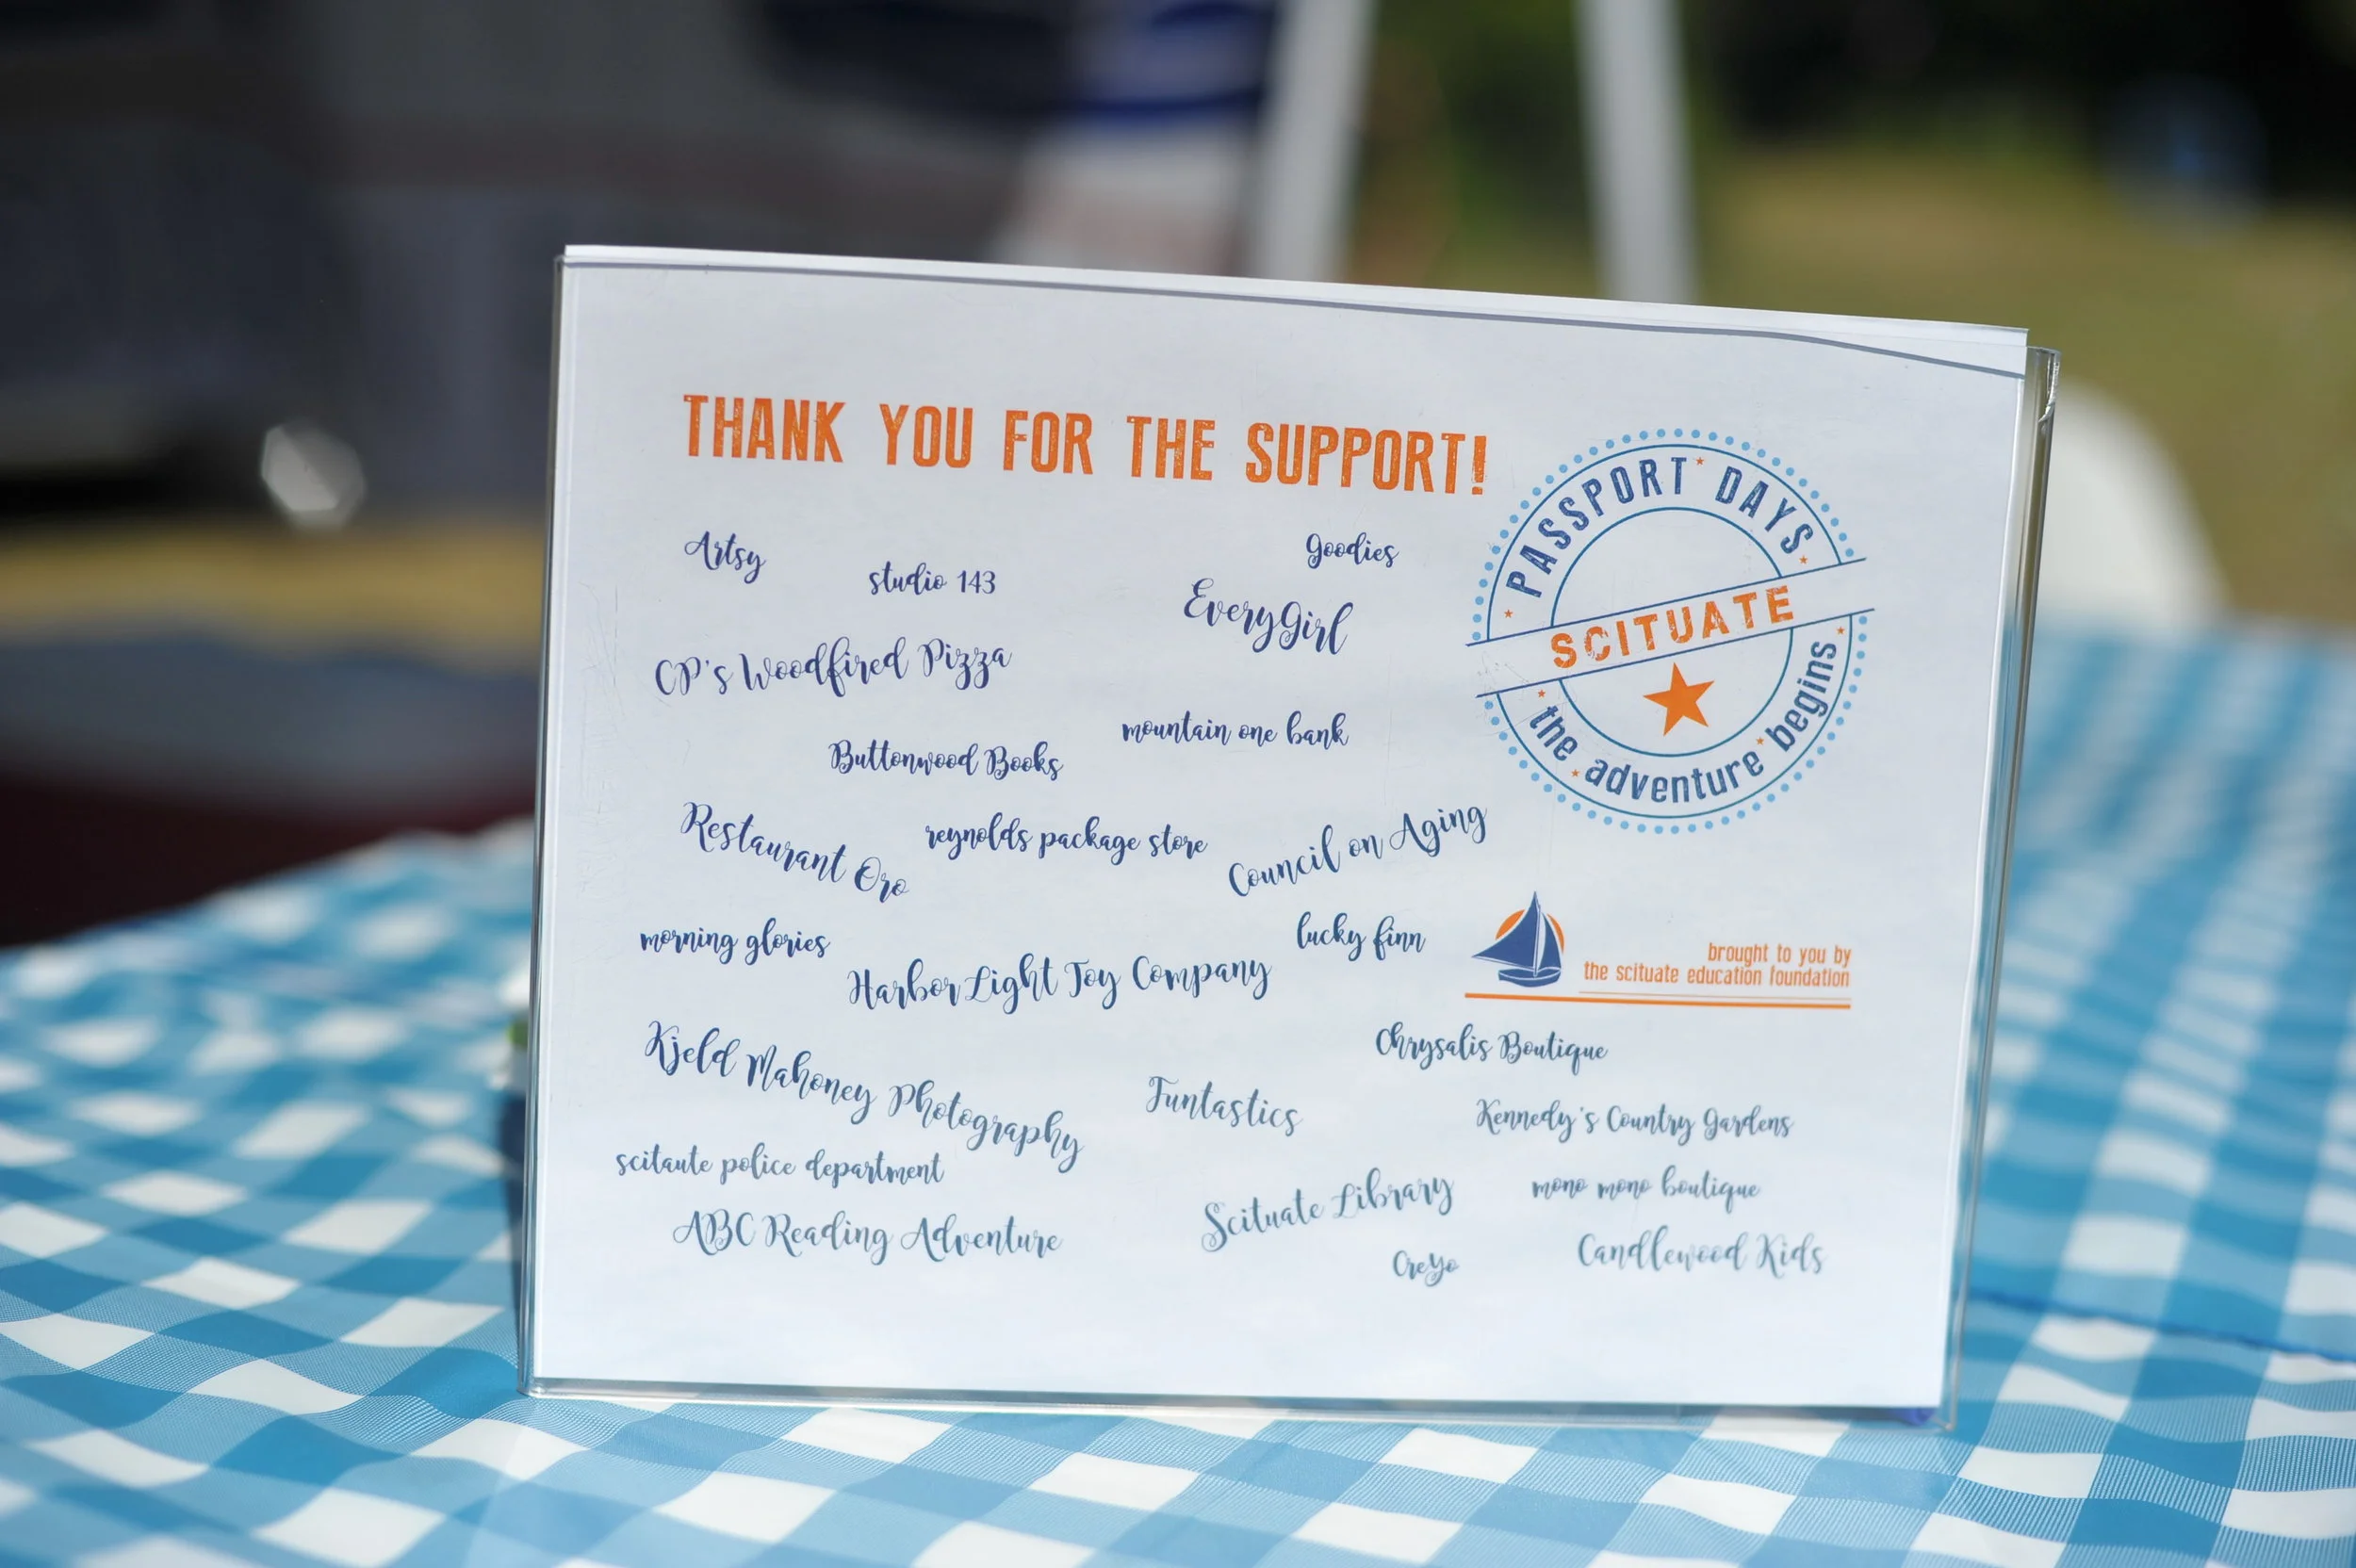 THANK YOU FOR THE SUPPORT!
PASSPORT DAYS
SCITUATE
the adventure begins
Artsy
studio 143
goodies
EveryGirl
CP's Woodfired Pizza
mountain one bank
Buttonwood Books
Restaurant Oro
reynolds package store
Council on Aging
morning glories
lucky finn
Harbor Light Toy Company
brought to you by
the scituate education foundation
Kjeld Mahoney Photography
Chrysalis Boutique
Funtastics
Kennedy's Country Gardens
scitaute police department
Scituate Library
mono mono boutique
ABC Reading Adventure
CreYo
Candlewood Kids